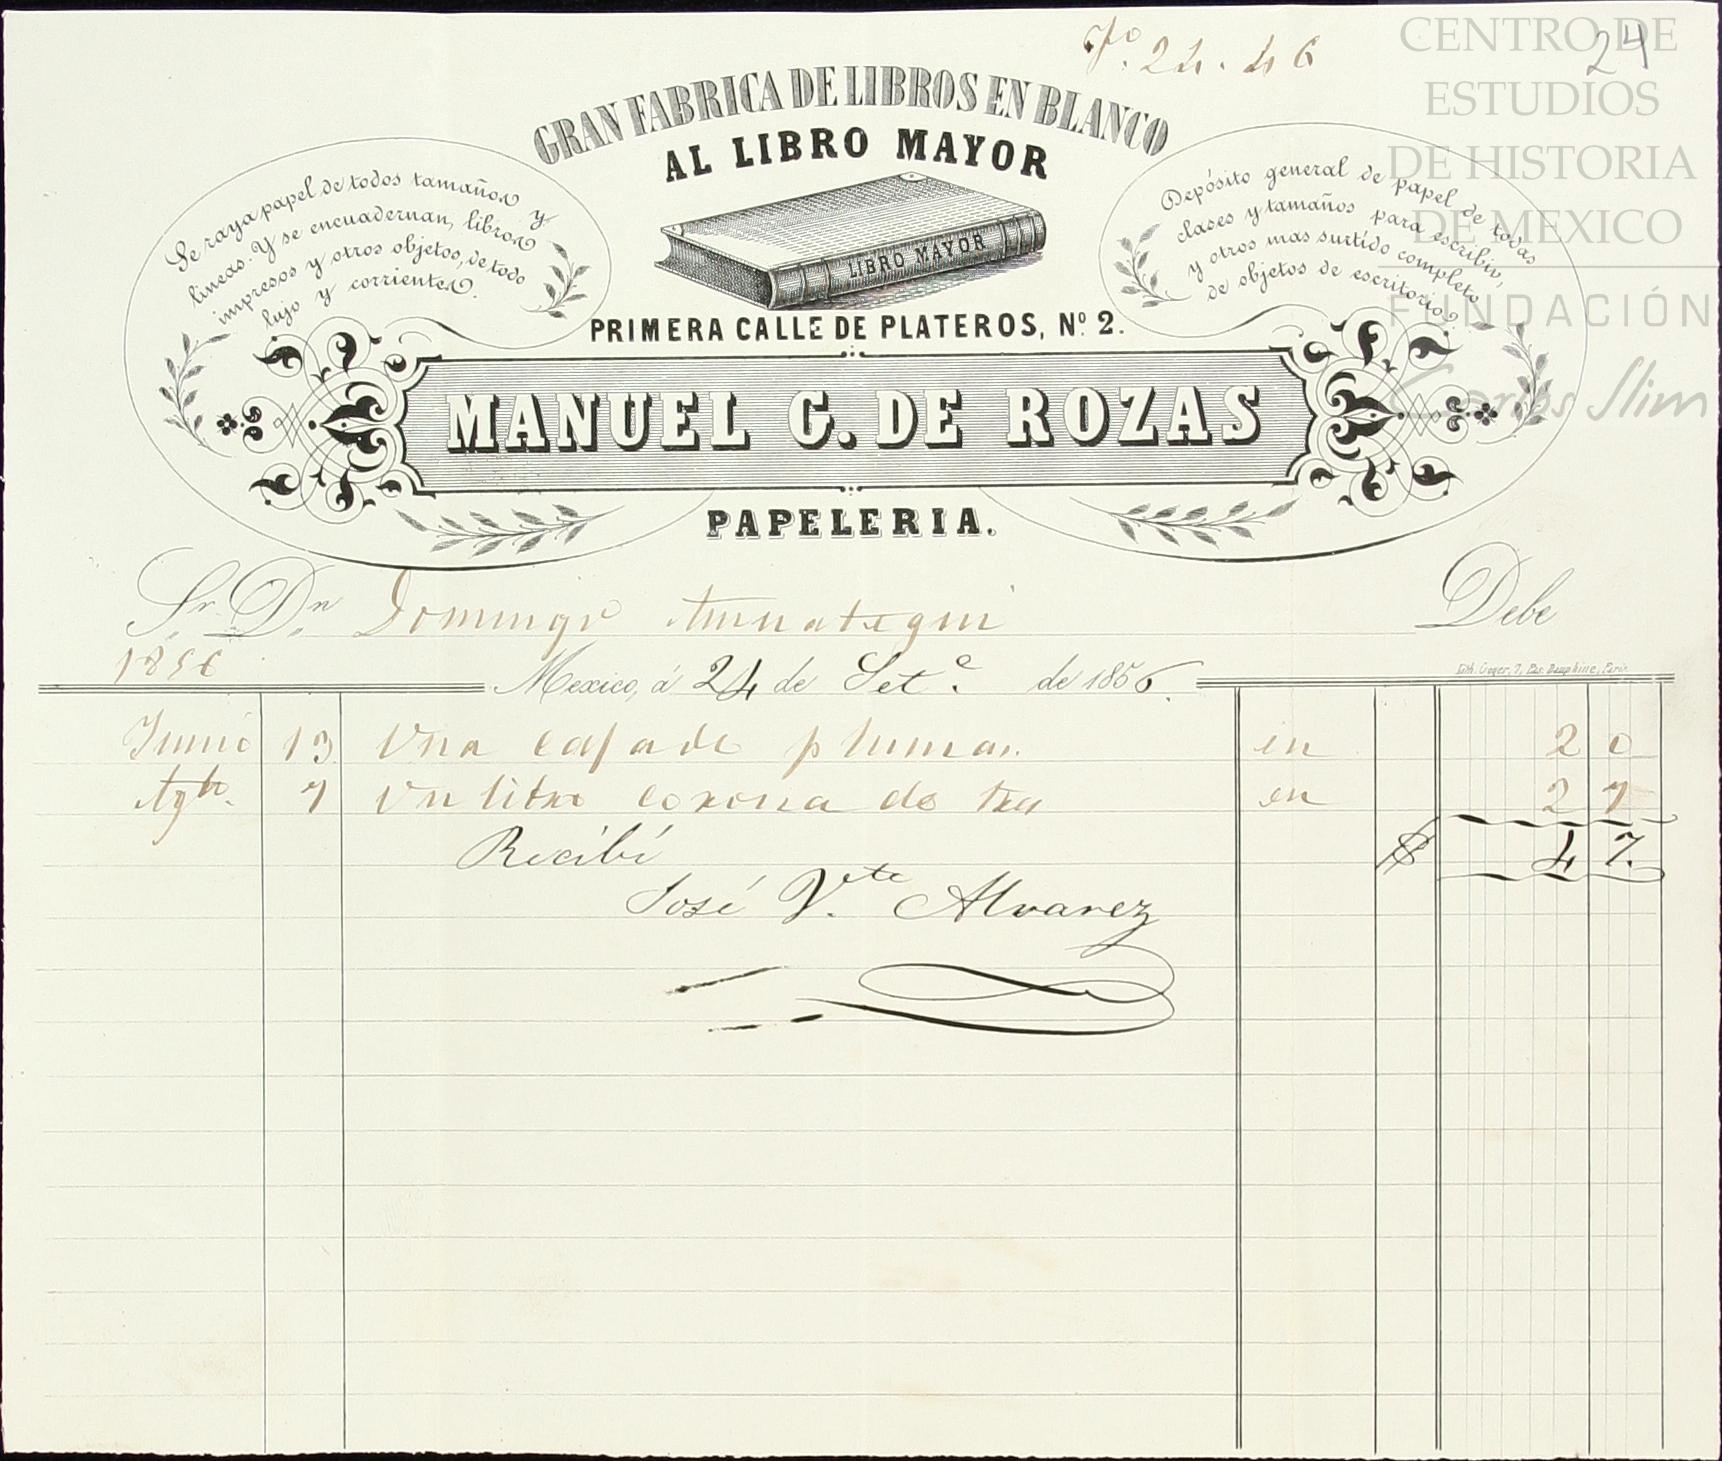 Fo. 24. 46
24
CENTRO DE
ESTUDIOS
DE HISTORIA
DE MEXICO
FUNDACIÓN
Carlos Slim
GRAN FABRICA DE LIBROS EN BLANCO
AL LIBRO MAYOR
Se raya papel de todos tamaños y
lineas. Y se encuadernan, libros
impresos y otros objetos, de todo
lujo y corrientes.
LIBRO MAYOR
Depósito general de papel de todas
clases y tamaños para escribir,
y otros mas surtido completo
de objetos de escritorio.
PRIMERA CALLE DE PLATEROS, Nº 2.
MANUEL G. DE ROZAS
PAPELERIA.
Sr. Dn. Domingo Amunategui Debe
1856
Mexico, á 24 de Set.e de 1856.
Junio 13 Una caja de plumas en 2 0
Agto. 7 Un litro corona de en 2 7
$ 4 7.
Recibí
José V.te Alvarez